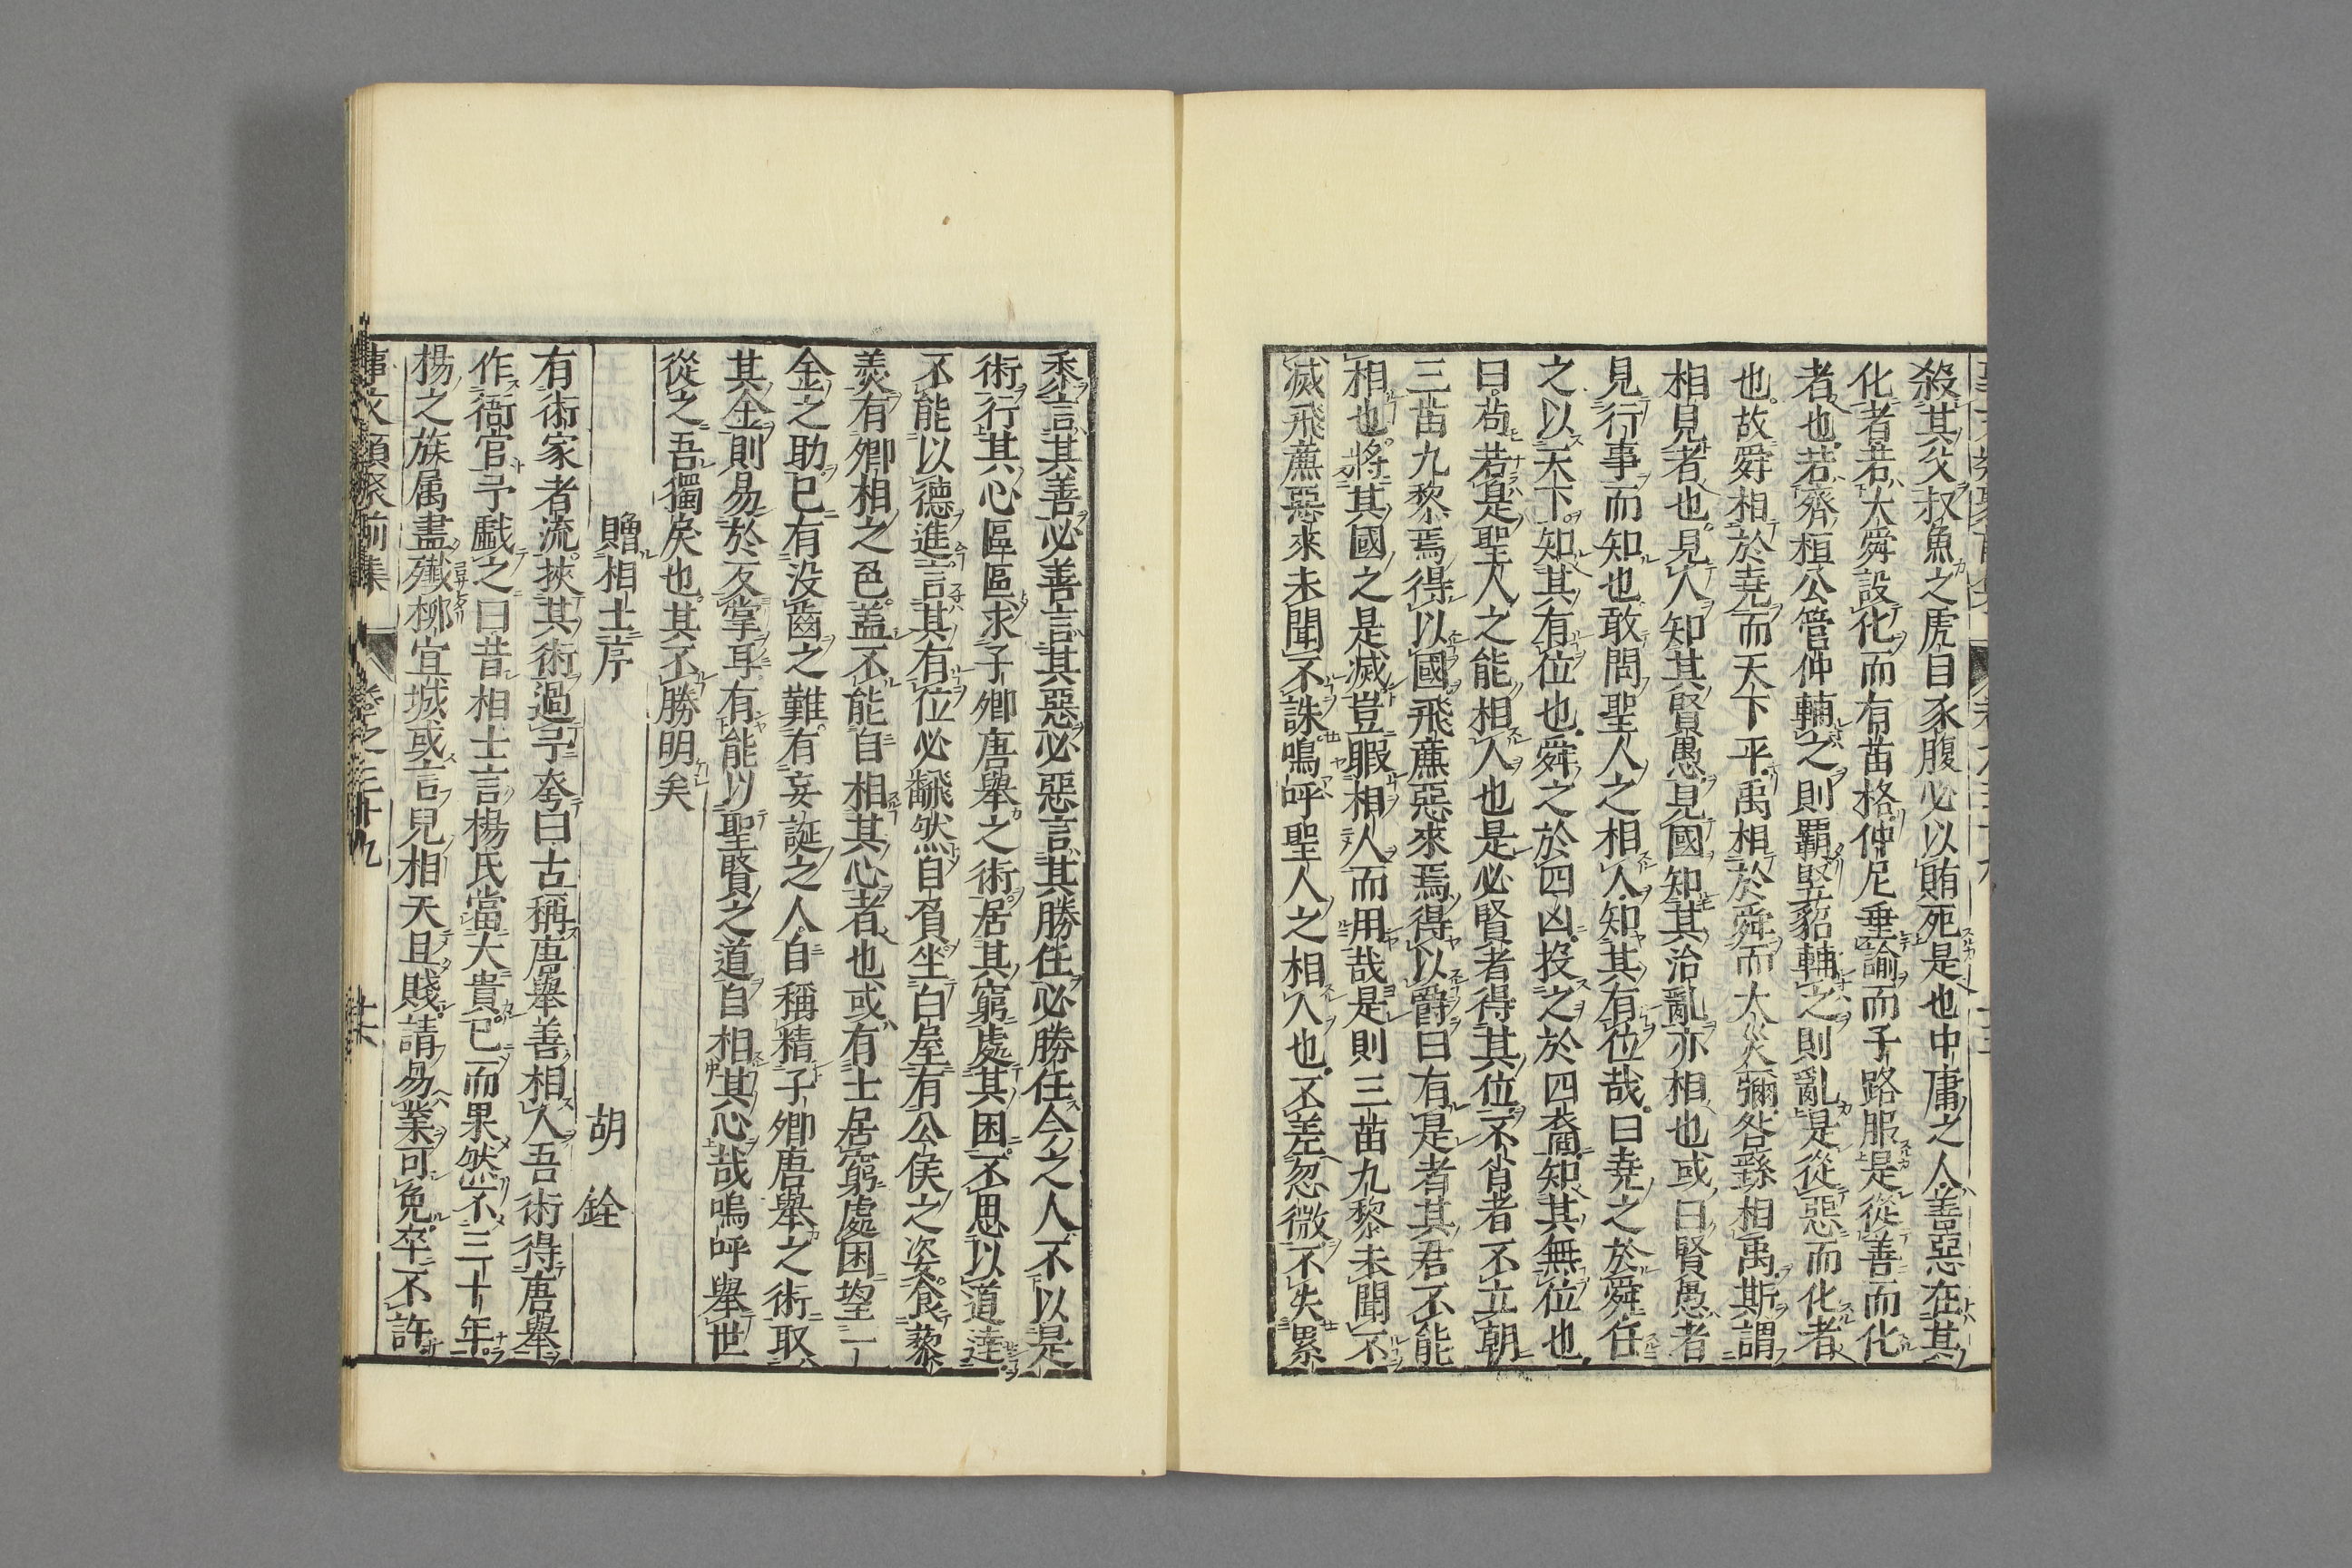 殺其父叔魚之虎目豕腹必以賄死是也中庸之人善惡在其
化者若大舜設化而有苗格仲尼垂諭而子路服是從善而化
者也若齊桓公管仲輔之則覇竪貂輔之則亂是從惡而化者
也故舜相於堯而天下平禹相於舜而大災彌咎繇相禹斯謂
相見者也見人知其賢愚見國知其治亂亦相也或曰賢愚者
見行事而知也敢問聖人之相人知其有位哉曰堯之於舜任
之以天下知其有位也舜之於四凶投之於四裔知其無位也
曰尚若是聖人之能相人也是必賢者得其位不肖者不立朝
三苗九黎焉得以國飛廉惡來焉得以爵曰有是者其君不能
相也將其國之是滅豈暇相人而用哉是則三苗九黎未聞不
滅飛廉惡來未聞不誅嗚呼聖人之相人也不差忽微不失累
黍言其善必善言其惡必惡言其勝任必勝任今之人不以是
術行其心區區求子卿唐舉之術居其窮處其困不思以道達
不能以德進言其有位必飜然自負坐白屋有公侯之姿食藜
羹有卿相之色蓋不能自相其心者也或有士居窮處困望一
金之助已有没齒之難有妄誕之人自稱精子卿唐舉之術取
其金則易於反掌耳有能以聖賢之道自相其心哉嗚呼舉世
從之吾獨戾也其不勝明矣
贈相士序 胡銓
有術家者流挾其術過予夸曰古稱唐舉善相人吾術得唐舉
作衙官予戲之曰昔相士言楊氏當大貴已而果然不三十年
楊之族属盡殲柳宜城或言見相夭且賤請易業可免卒不許
事文類聚前集 卷之三十九